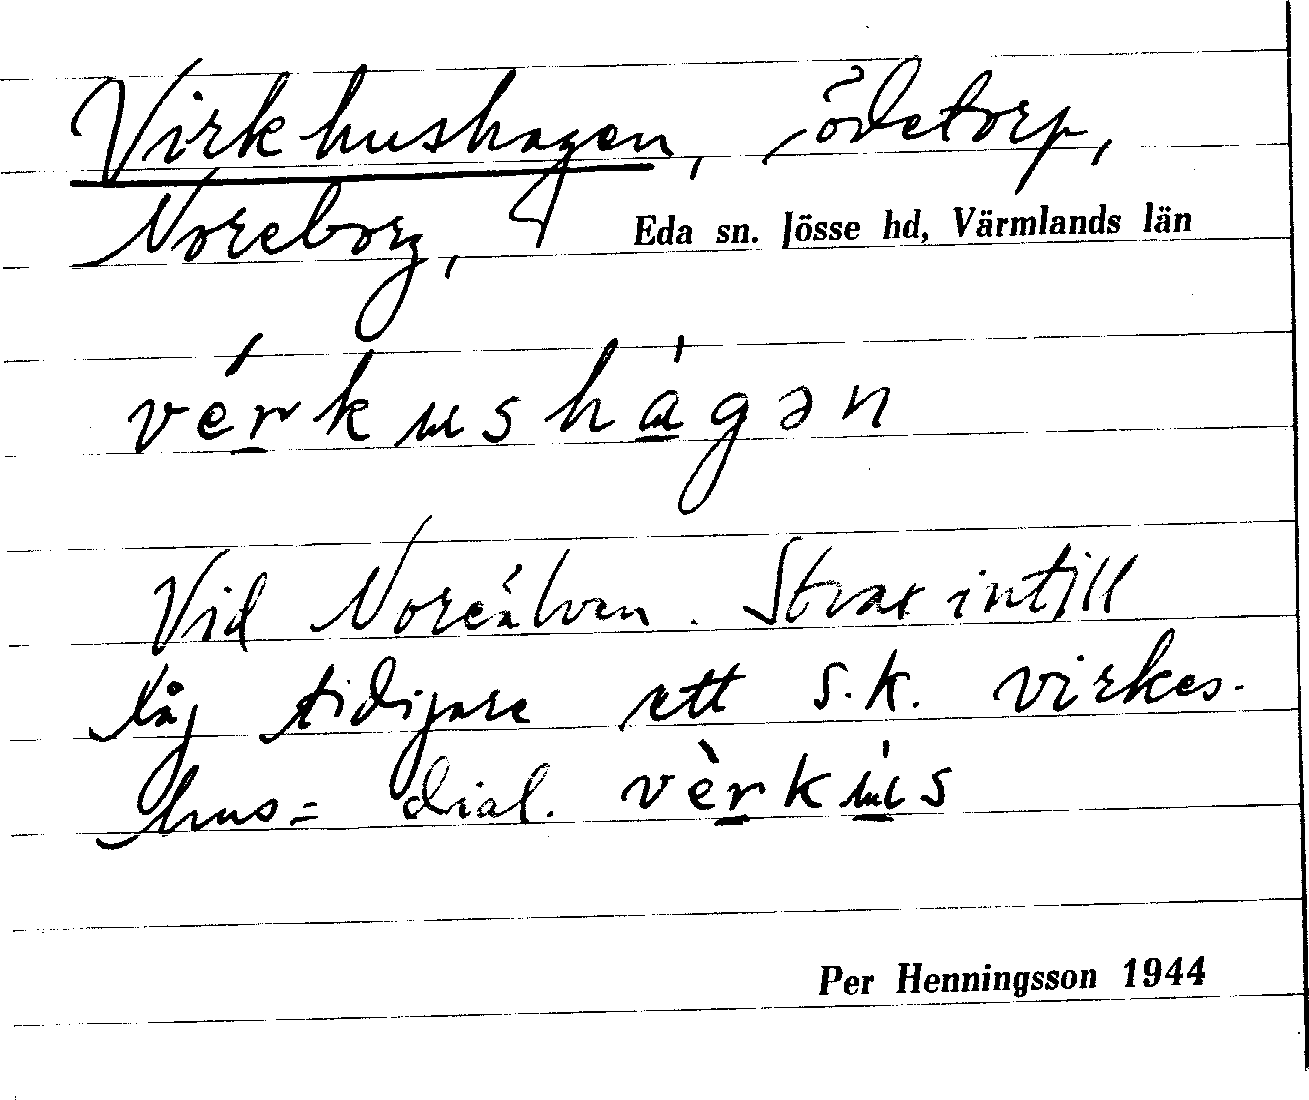 Virkhushagen, ödetorp,
Noreborg, Eda sn. Jösse hd, Värmlands län
vérkushágən
Vid Noreälven. Strax intill
låg tidigare ett s.k. virkes-
hus = dial. vèrkús
Per Henningsson 1944